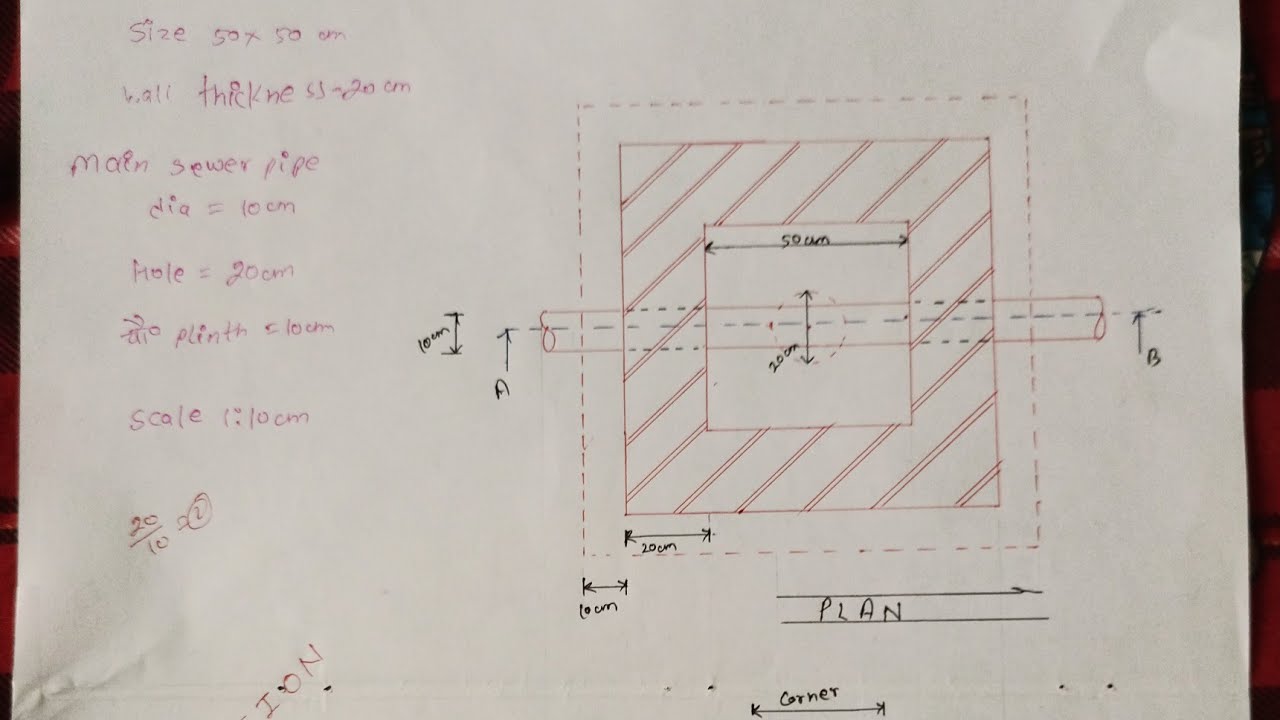 Size 50 x 50 cm
wall thickness = 20 cm
Main sewer pipe
dia = 10cm
Hole = 20cm
plinth = 10cm
Scale 1:10cm
20/10 = 2
50cm
10cm
20cm
A
B
20cm
10cm
PLAN
ION
Corner